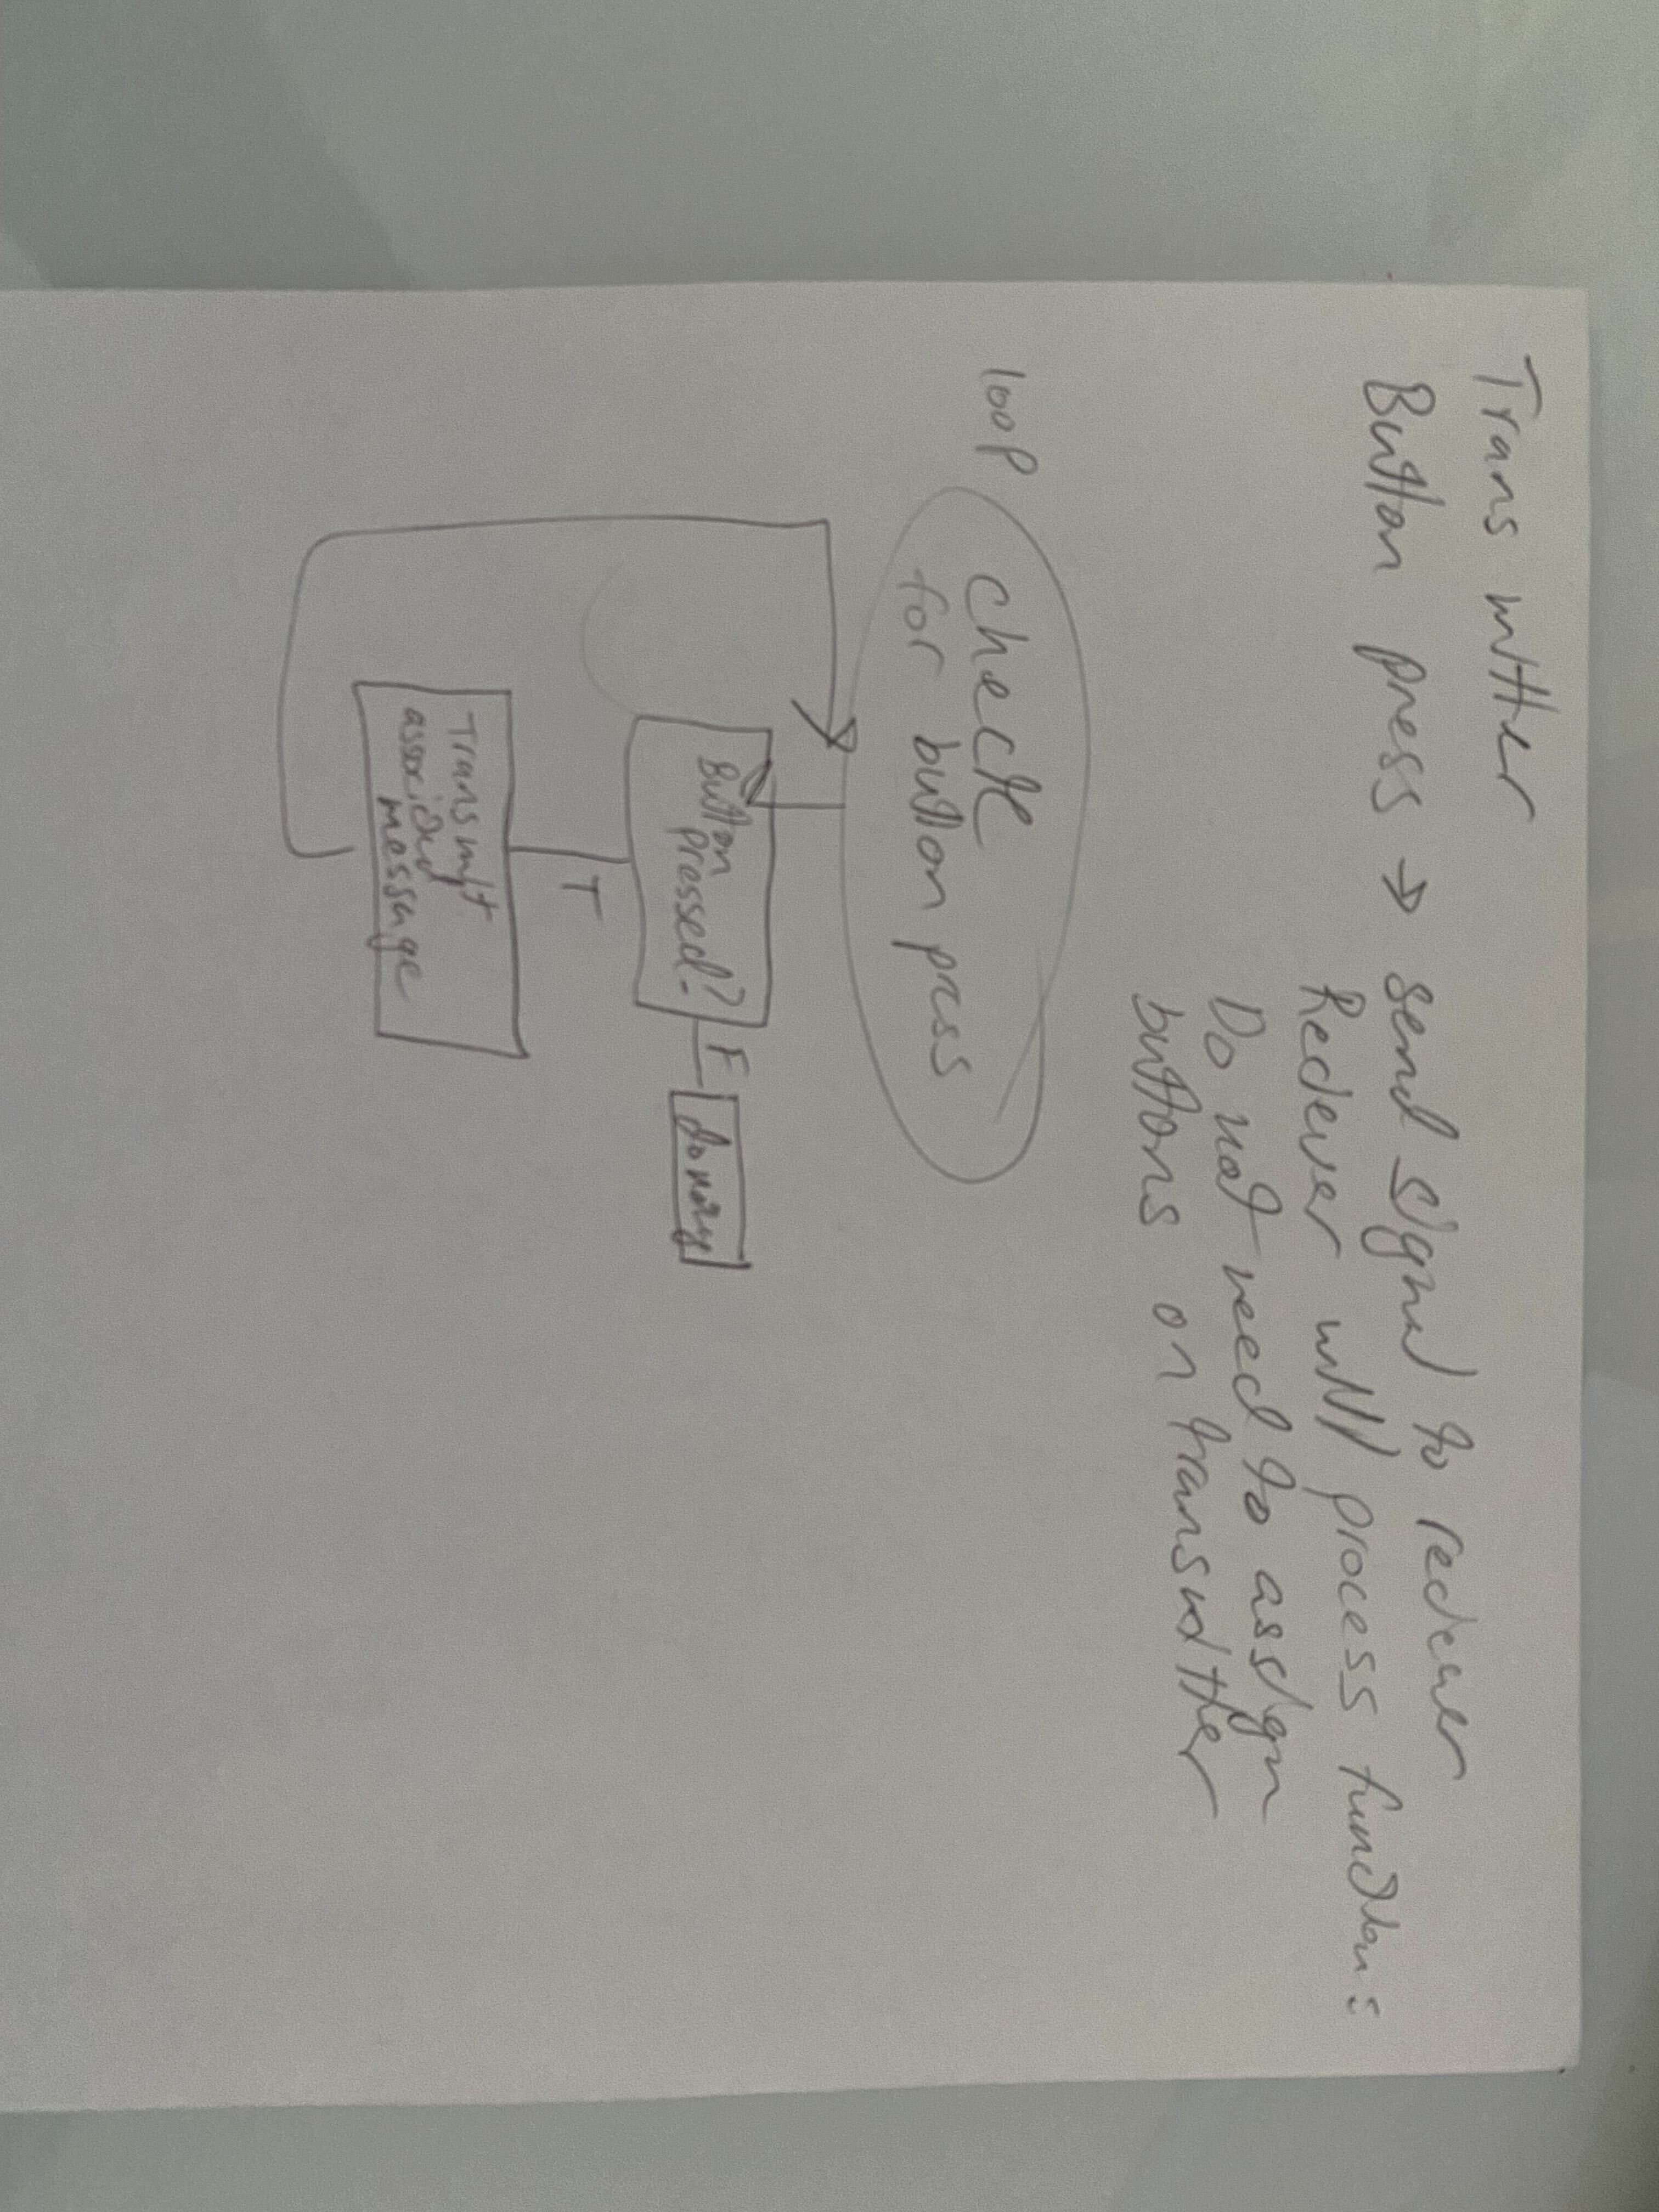 Transmitter
Button press → send signal to reciever
Reciever will process functions
Do not need to assign
buttons on transmitter
loop
Check
for button press
Button
pressed?
F
T
Transmit
associated
message